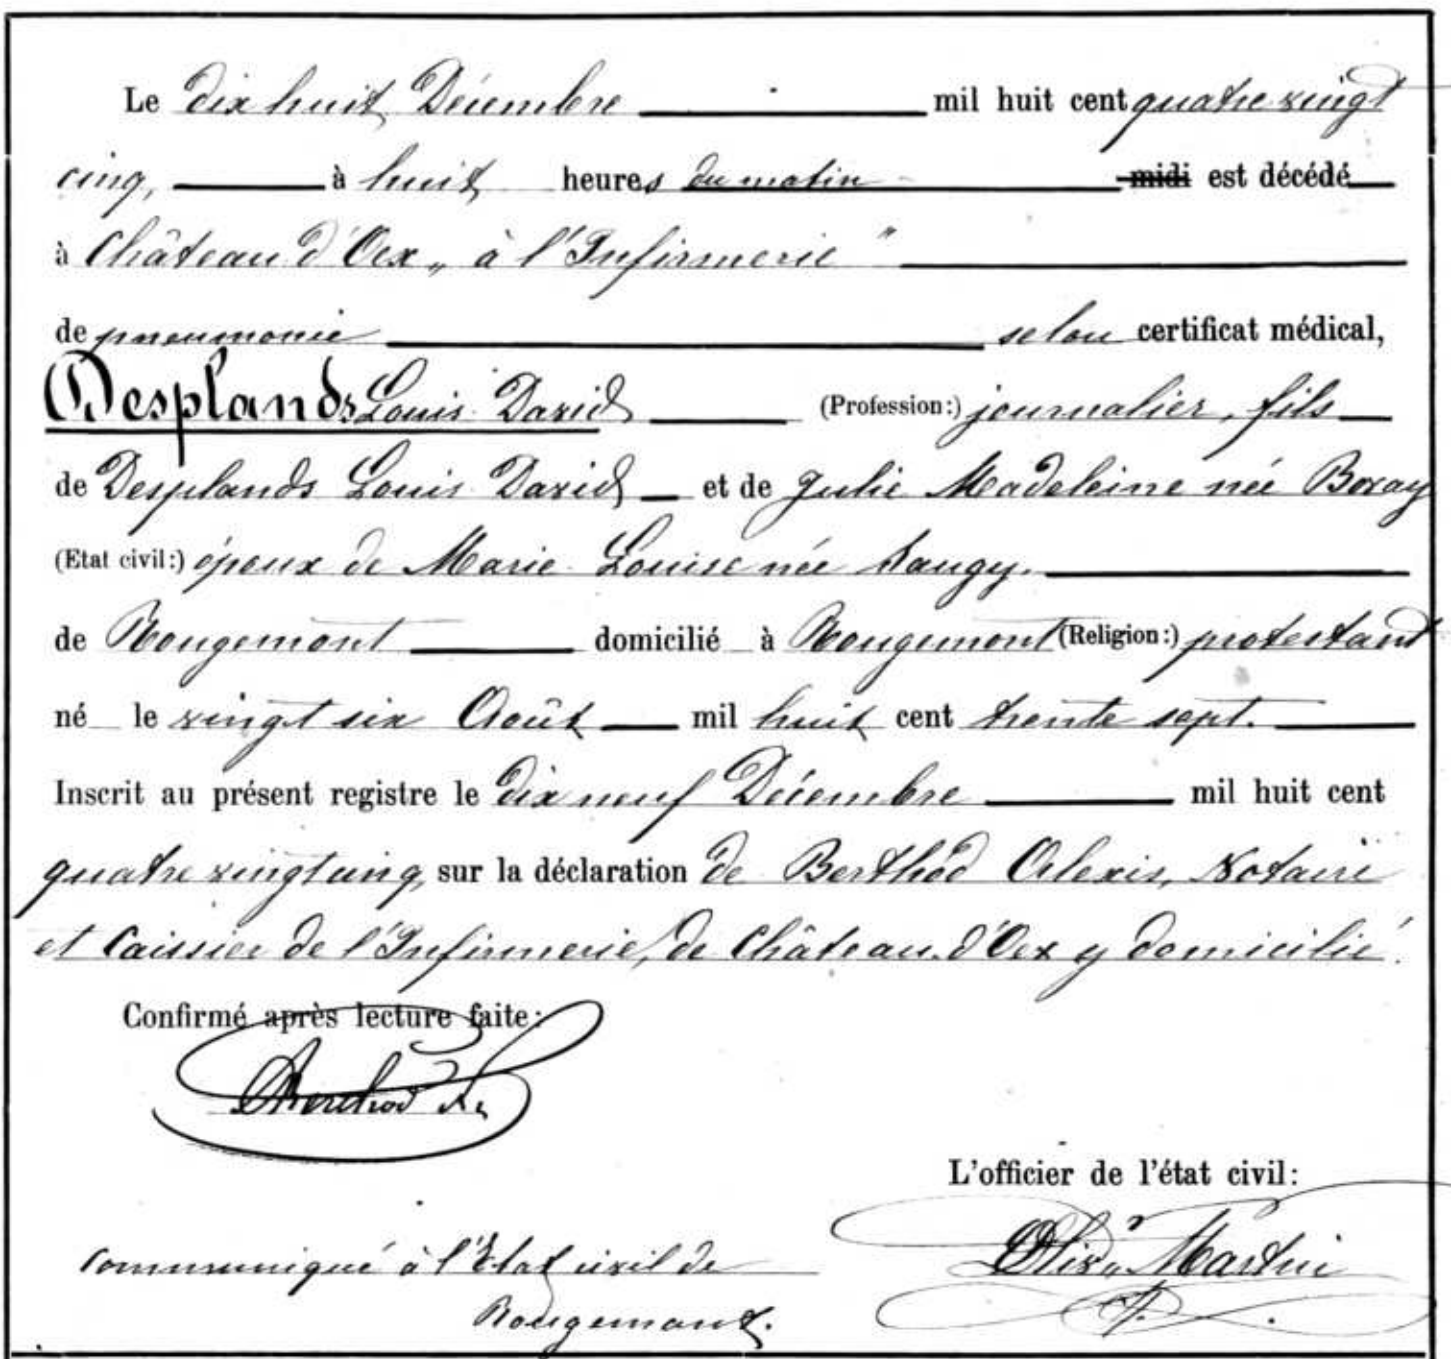 Le dix huit Décembre mil huit cent quatre vingt
cinq, à huit heures du matin midi est décédé
à Château d'Oex „ à l'Infirmerie "
de pneumonie selon certificat médical,
Desplands Louis David (Profession:) journalier, fils
de Desplands Louis David et de Julie Madeleine née
(Etat civil:) époux de Marie Louise née Saugy.
de Rougemont domicilié à Rougemont (Religion:) protestant
né le vingt six Août mil huit cent trente sept.
Inscrit au présent registre le dix neuf Décembre mil huit cent
quatre vingt cinq, sur la déclaration de Berthod Alexis, Notaire
et Caissier de l'Infirmerie, de Château d'Oex y domicilié.
Confirmé après lecture faite:
Berthod
L'officier de l'état civil:
Martin
Communiqué à l'Etat civil de
Rougemont.